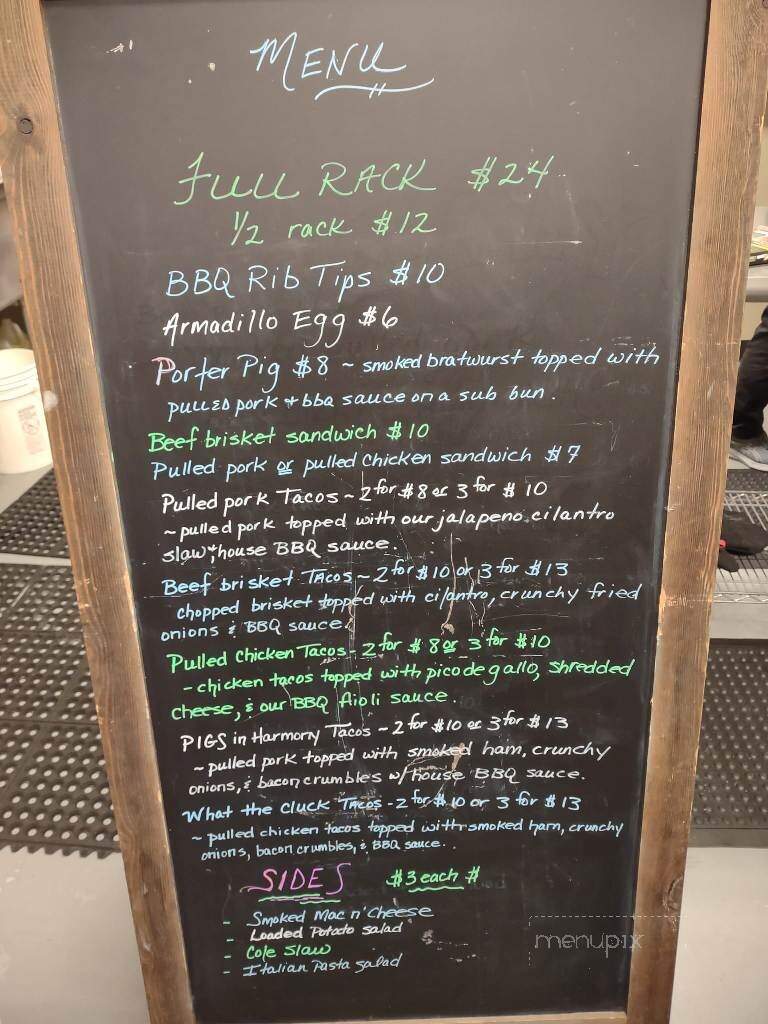 MENU
FULL RACK $24
1/2 rack $12
BBQ Rib Tips $10
Armadillo Egg $6
Porter Pig $8 ~ smoked bratwurst topped with
pulled pork + bbq sauce on a sub bun.
Beef brisket sandwich $10
Pulled pork or pulled chicken sandwich $7
Pulled pork Tacos ~ 2 for $8 or 3 for $10
~ pulled pork topped with our jalapeno cilantro
slaw + house BBQ sauce.
Beef brisket Tacos ~ 2 for $10 or 3 for $13
chopped brisket topped with cilantro, crunchy fried
onions & BBQ sauce.
Pulled Chicken Tacos - 2 for $8 or 3 for $10
- chicken tacos topped with pico de gallo, shredded
cheese, & our BBQ Aioli sauce.
PIGS in Harmony Tacos ~ 2 for $10 or 3 for $13
~ pulled pork topped with smoked ham, crunchy
onions, & bacon crumbles w/ house BBQ sauce.
What the cluck Tacos - 2 for $10 or 3 for $13
~ pulled chicken tacos topped with smoked ham, crunchy
onions, bacon crumbles, & BBQ sauce..
SIDES $3 each $
- Smoked Mac n' Cheese
- Loaded Potato salad
- Cole Slaw
- Italian Pasta salad
menupix